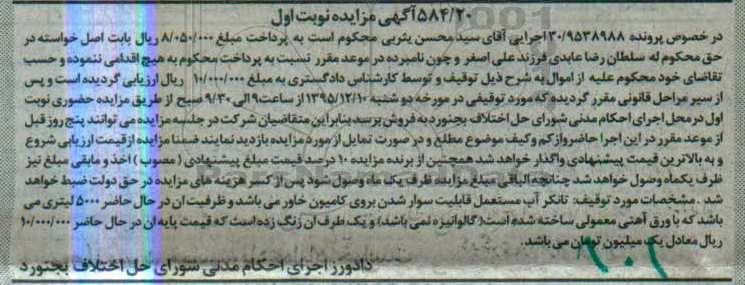 ۵۸۴/۲۰ آگهی مزایده نوبت اول
در خصوص پرونده ۳۰/۹۵۳۸۹۸۸ اجرایی آقای سید محسن یثربی محکوم است به پرداخت مبلغ ۸/۰۵۰/۰۰۰ ریال بابت اصل خواسته در
حق محکوم له سلطان رضا عابدی فرزند علی اصغر و چون نامبرده در موعد مقرر نسبت به پرداخت محکوم به هیچ اقدامی ننموده و حسب
تقاضای خود محکوم علیه از اموال به شرح ذیل توقیف و توسط کارشناس دادگستری به مبلغ ۱۰/۰۰۰/۰۰۰ ریال ارزیابی گردیده است و پس
از سیر مراحل قانونی مقرر گردیده که مورد توقیفی در مورخه دو شنبه ۱۳۹۵/۱۲/۱۰ از ساعت ۹ الی ۹/۳۰ صبح از طریق مزایده حضوری نوبت
اول در محل اجرای احکام مدنی شورای حل اختلاف بجنورد به فروش برسد بنابراین متقاضیان شرکت در جلسه مزایده می توانند پنج روز قبل
از موعد مقرر در این اجرا حاضر و از کم و کیف موضوع مطلع و در صورت تمایل از مورد مزایده بازدید نمایند ضمنا مزایده از قیمت ارزیابی شروع
و به بالاترین قیمت پیشنهادی واگذار خواهد شد همچنین از برنده مزایده ۱۰ درصد قیمت مبلغ پیشنهادی (مصوب) اخذ و مابقی مبلغ نیز
ظرف یکماه وصول خواهد شد چنانچه الباقی مبلغ مزایده ظرف یک ماه وصول نشود پس از کسر هزینه های مزایده در حق دولت ضبط خواهد
شد . مشخصات مورد توقیف: تانکر آب مستعمل قابلیت سوار شدن بروی کامیون خاور می باشد و ظرفیت ان در حال حاضر ۵۰۰۰ لیتری می
باشد که با ورق آهنی معمولی ساخته شده است( گالوانیزه نمی باشد) و یک طرف ان زنگ زده است که قیمت پایه ان در حال حاضر ۱۰/۰۰۰/۰۰۰
ریال معادل یک میلیون تومان می باشد.
دادورز اجرای احکام مدنی شورای حل اختلاف بجنورد